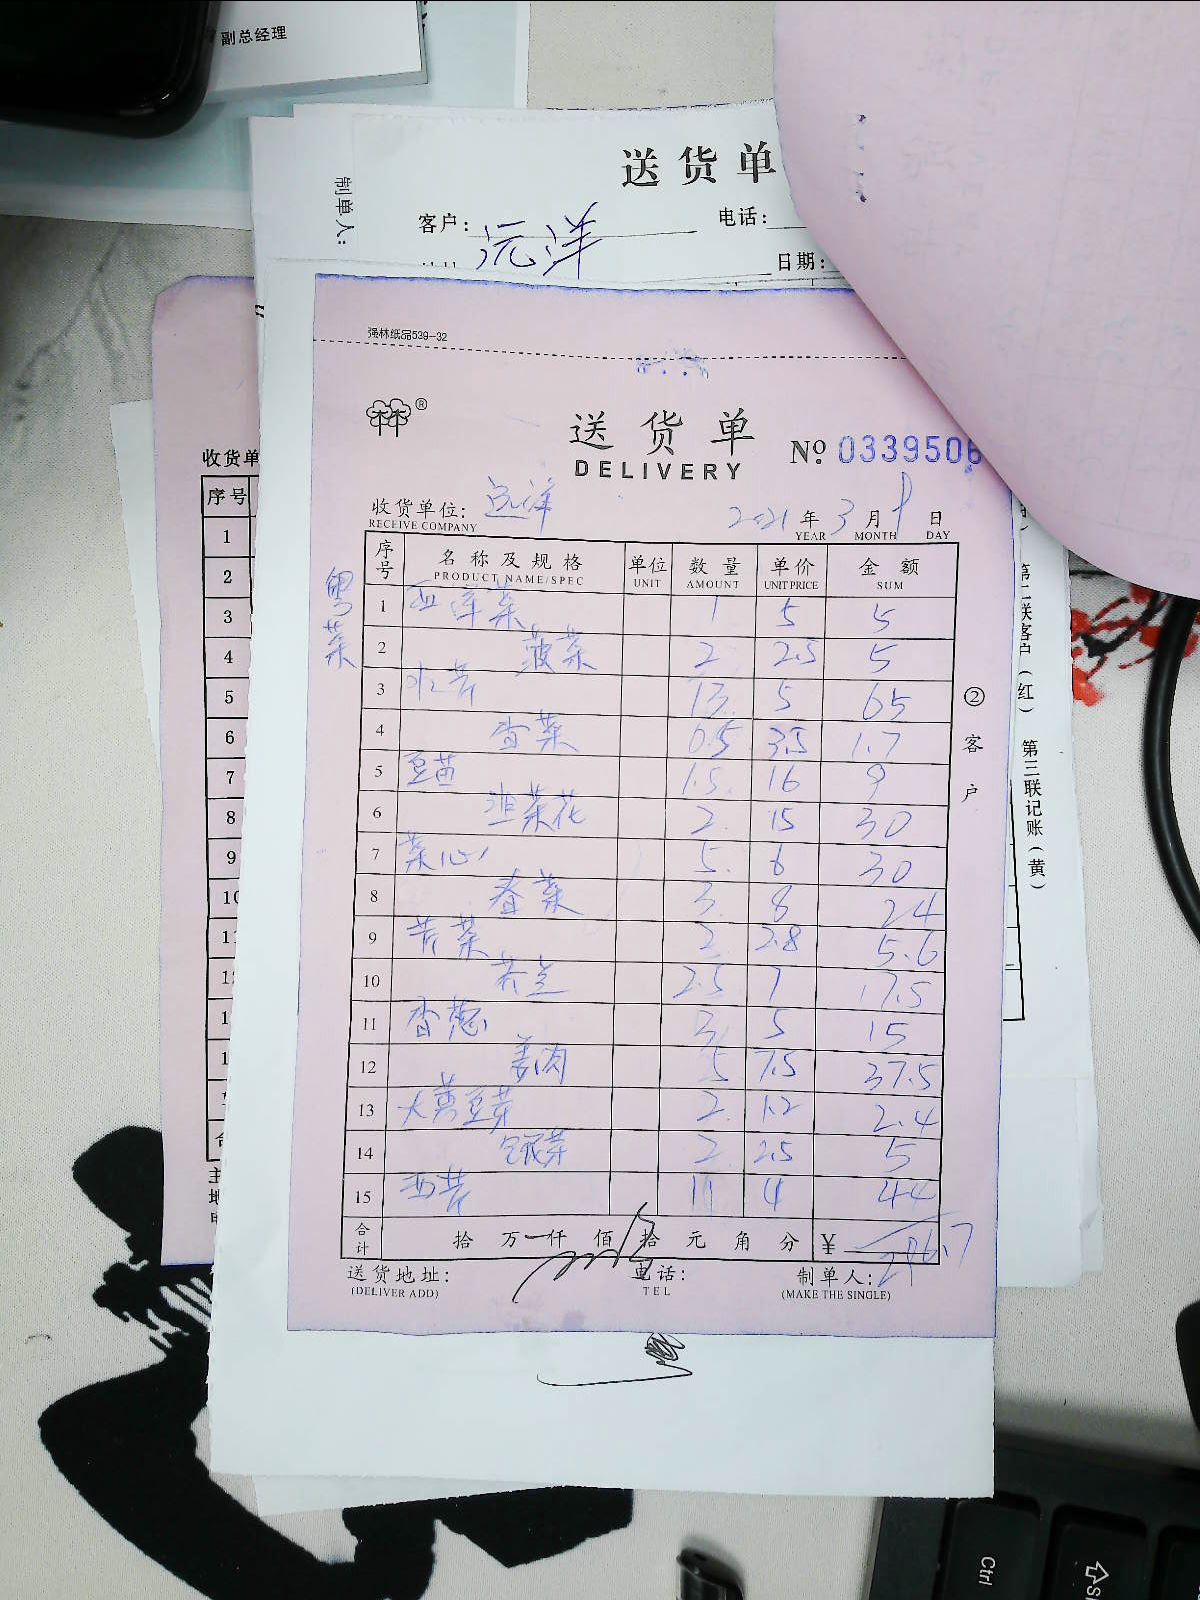 副总经理
送货单
制单人:
客户: 远洋 电话:
日期:
强林纸品539-32
®
送货单
DELIVERY
№ 0339506
收货单位: 远洋
RECEIVE COMPANY
2021年3月 日
YEAR MONTH DAY
粤菜
序号 名称及规格 单位 数量 单价 金额
PRODUCT NAME/SPEC UNIT AMOUNT UNIT PRICE SUM
1 西洋菜 1 5 5
2 菠菜 2 2.5 5
3 水芹 13 5 65
4 香菜 0.5 3.5 1.7
5 豆苗 1.5 16 9
6 韭菜花 2 15 30
7 菜心 5 6 30
8 春菜 3 8 24
9 苦菜 2 2.8 5.6
10 芥兰 2.5 7 17.5
11 香葱 3 5 15
12 姜肉 5 7.5 37.5
13 大黄豆芽 2 1.2 2.4
14 银芽 2 2.5 5
15 西芹 11 4 44
合计 拾万仟佰拾元角分 ¥ 296.7
送货地址: 电话: 制单人:
(DELIVER ADD) TEL (MAKE THE SINGLE)
②客户
收货单
序号
1
2
3
4
5
6
7
8
9
10
11
第二联客户(红) 第三联记账(黄)
Ctrl